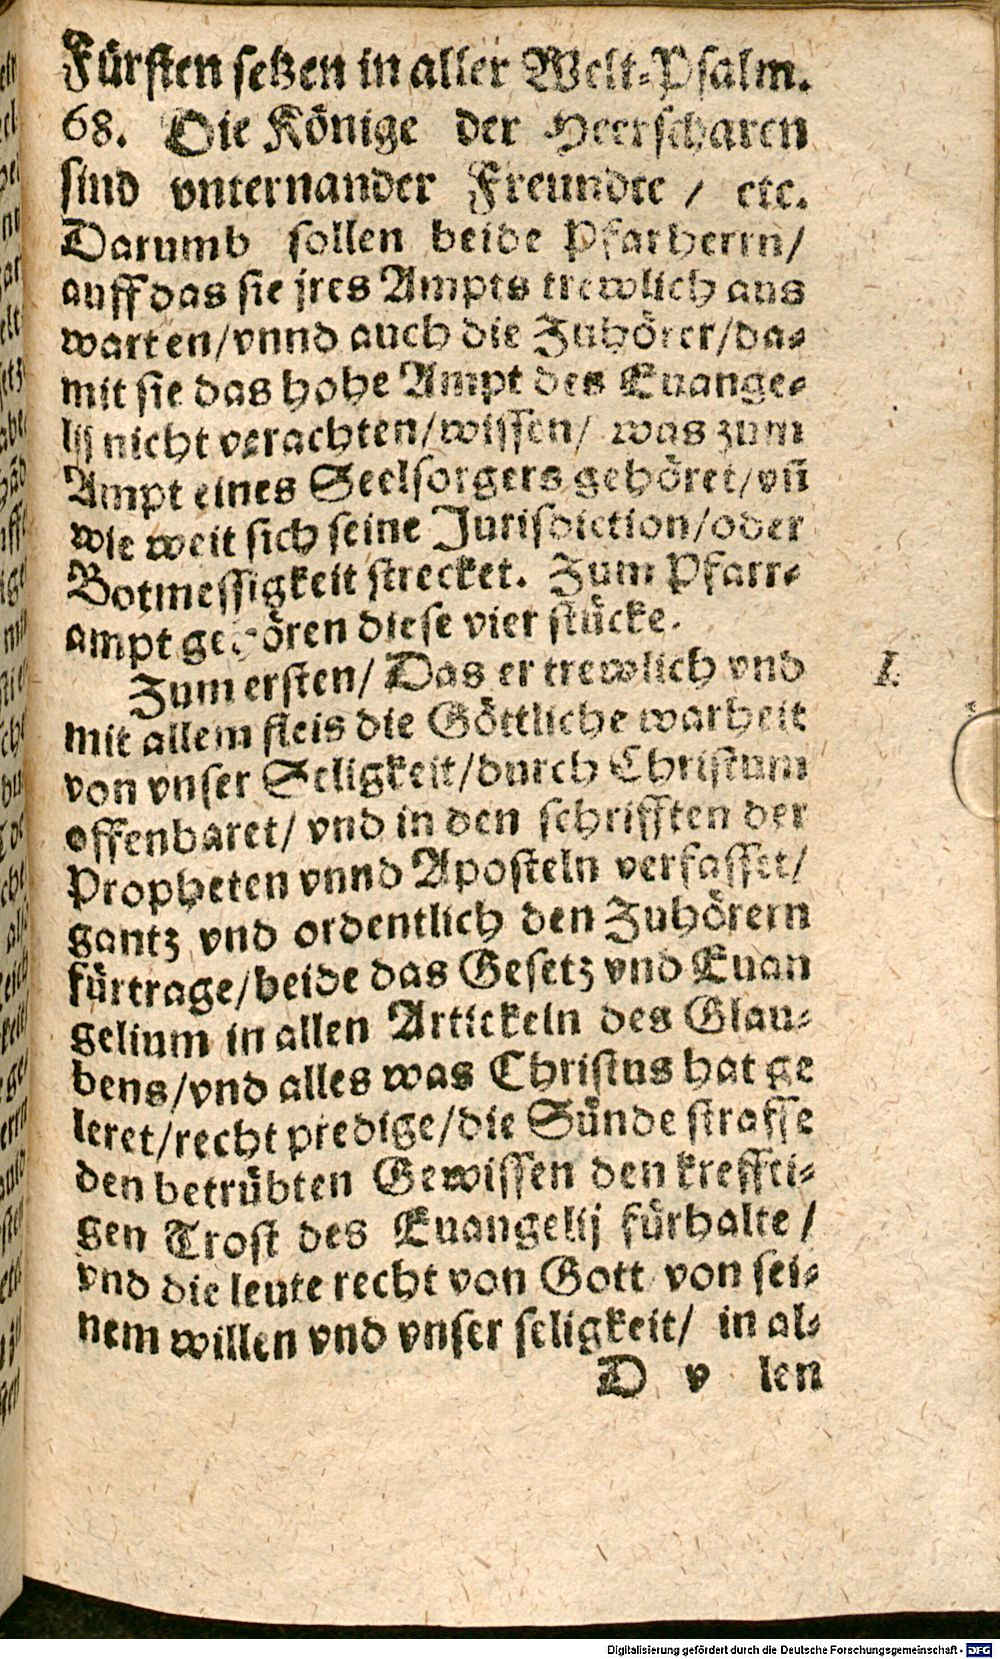 Fürsten setzen in aller Welt-Psalm.
68. Die Könige der Heerscharen
sind vnternander Freundte / etc.
Darumb sollen beide Pfarherrn/
auff das sie jres Ampts trewlich aus
warten/vnnd auch die Zuhörer/da-
mit sie das hohe Ampt des Euange-
lij nicht verachten/wissen/ was zum
Ampt eines Seelsorgers gehöret/vñ
wie weit sich seine Jurisdiction/oder
Botmessigkeit strecket. Zum Pfarr-
ampt gehören diese vier stücke.
Zum ersten/ Das er trewlich vnd
I.
mit allem fleis die Göttliche warheit
von vnser Seligkeit/durch Christum
offenbaret/ vnd in den schrifften der
Propheten vnnd Aposteln verfasset/
gantz vnd ordentlich den Zuhörern
fürtrage/beide das Gesetz vnd Euan
gelium in allen Artickeln des Glau-
bens/vnd alles was Christus hat ge
leret/recht predige/die Sünde straffe
den betrübten Gewissen den kreffti-
gen Trost des Euangelij fürhalte /
vnd die leute recht von Gott von sei-
nem willen vnd vnser seligkeit/ in al-
D v len
Digitalisierung gefördert durch die Deutsche Forschungsgemeinschaft - DFG